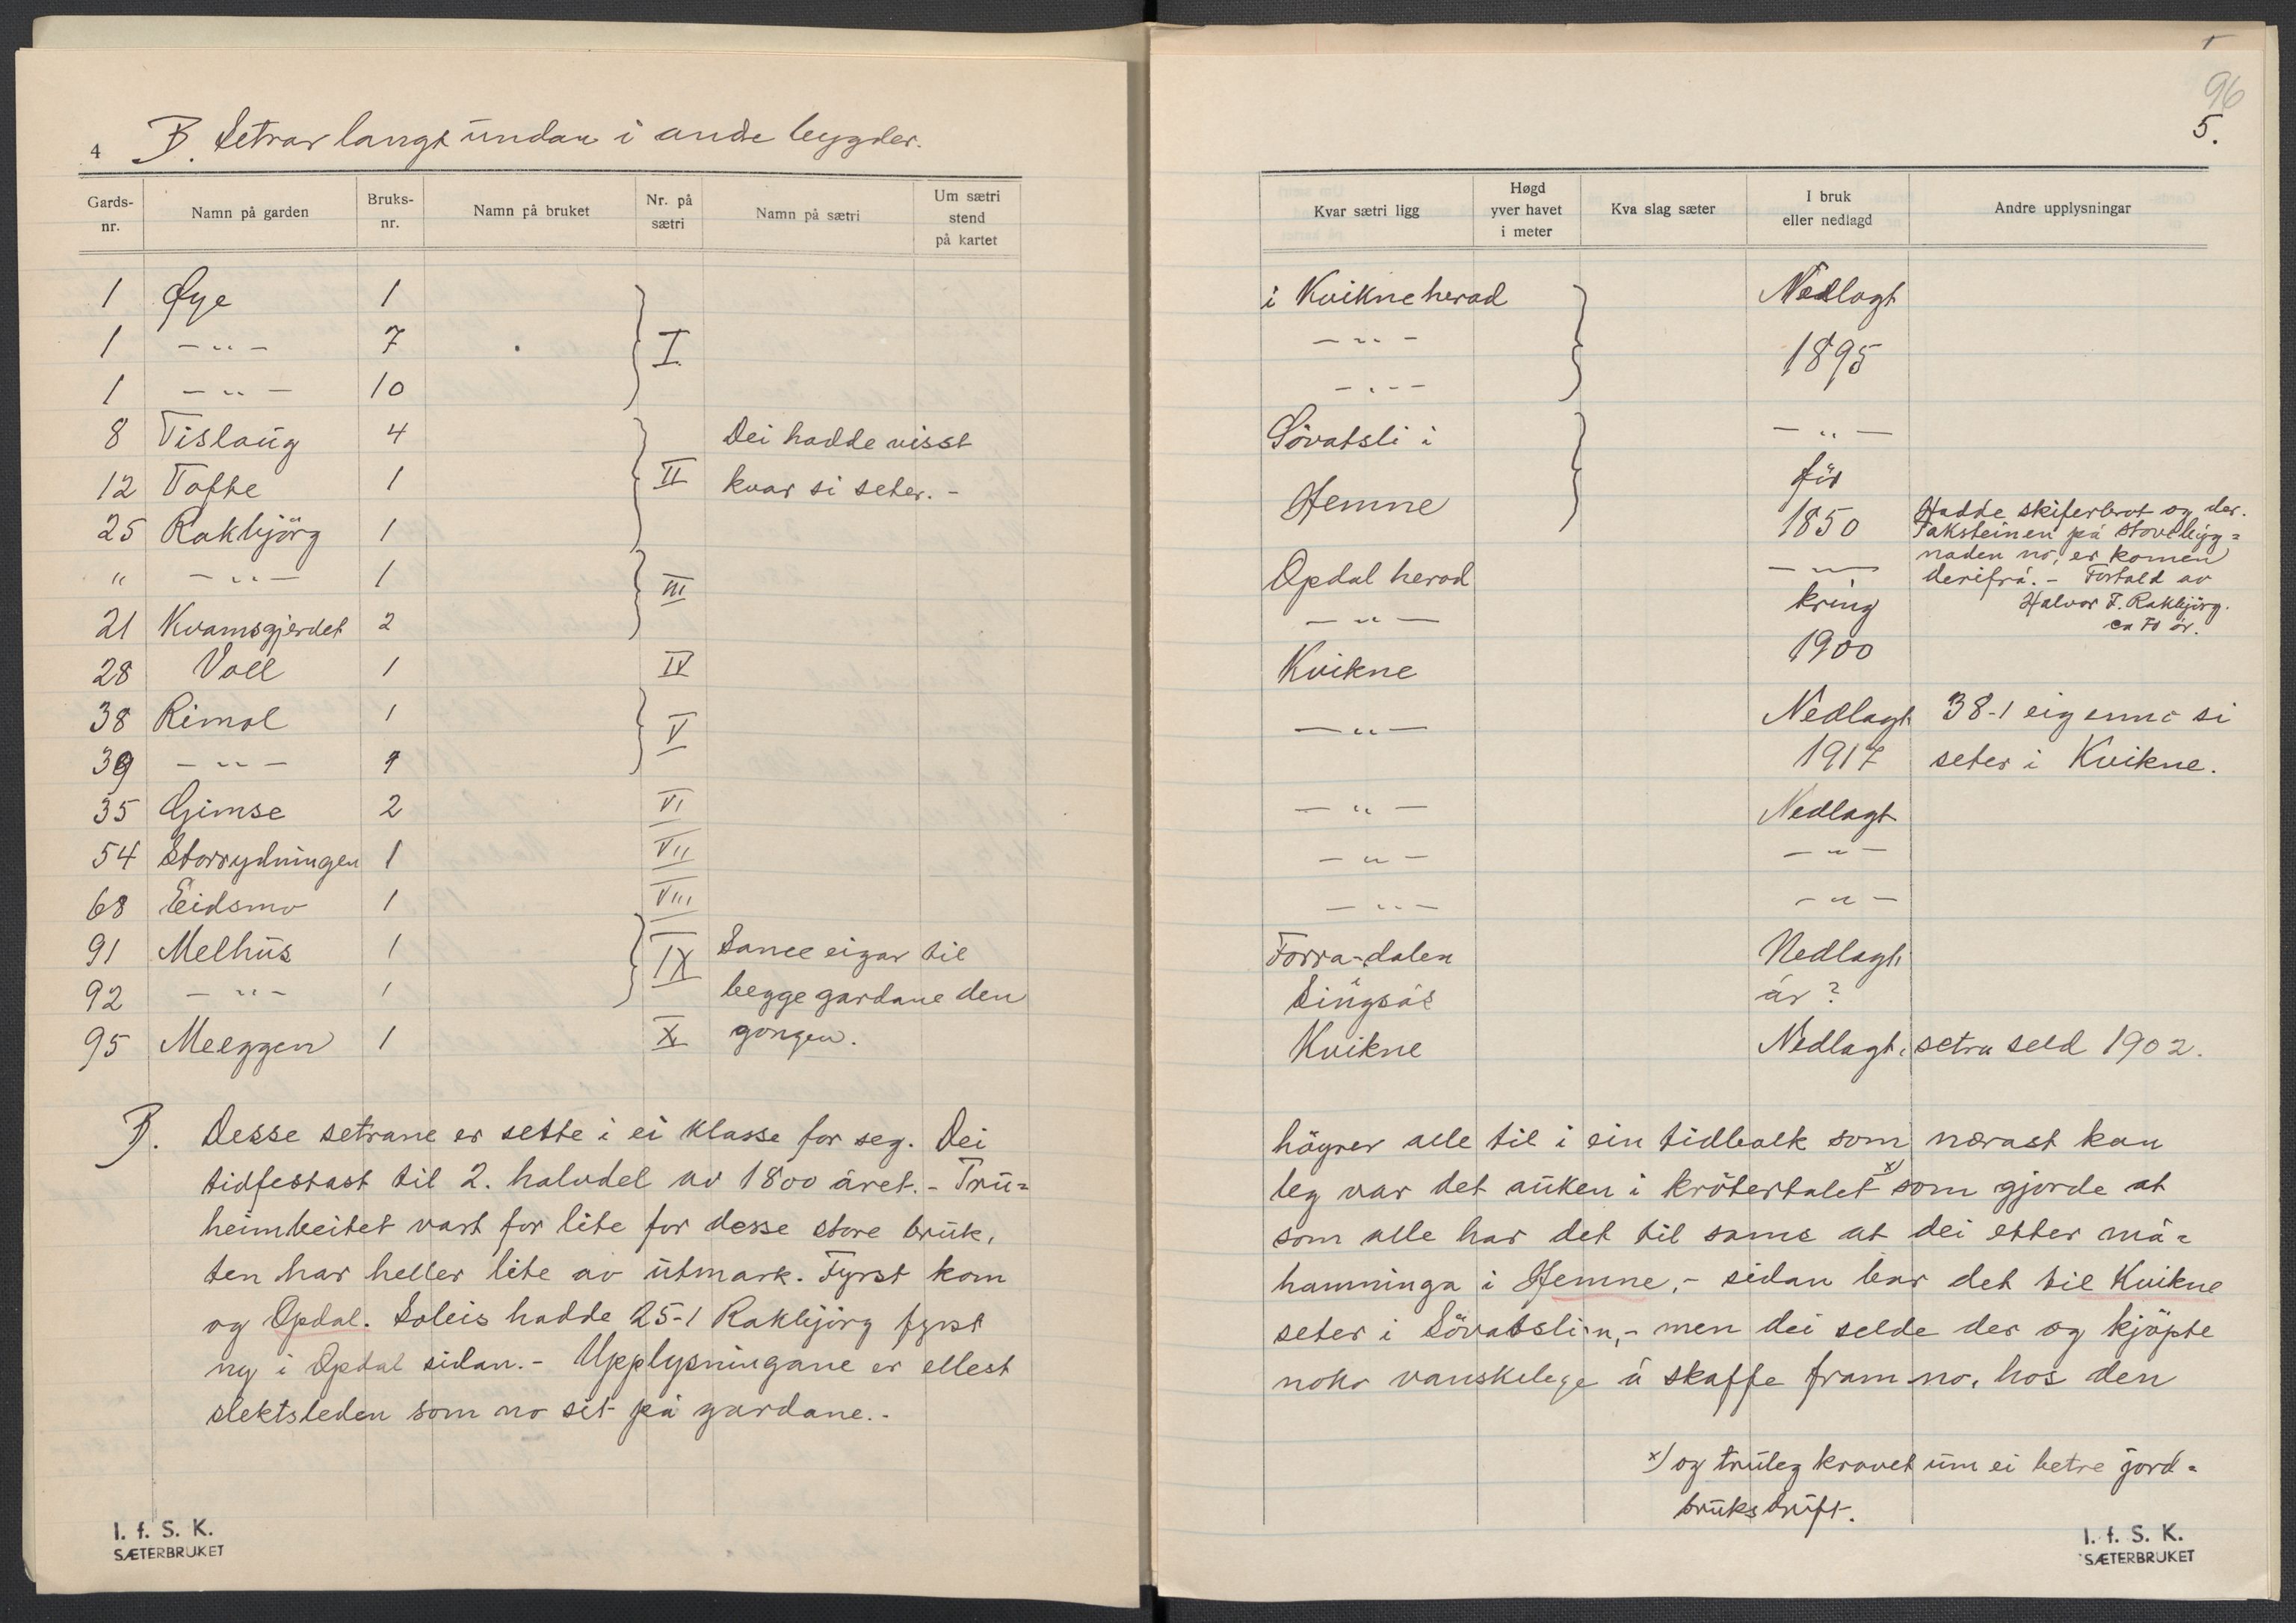 4 B. Setrar langt undan i andre bygder.
Gards-nr. Namn på garden Bruks-nr. Namn på bruket Nr. på sætri Namn på sætri Um sætri stend på kartet
1 Øye 1
1 – " – 7 I
1 – " – 10
8 Tislaug 4 Dei hadde visst
12 Tofte 1 II kvar si seter. -
25 Rakbjörg 1
" – " – 1 III
21 Kvamsgjerdet 2
28 Voll 1 IV
38 Rimol 1 V
39 – " – 1
35 Gimse 2 VI
54 Storrydningen 1 VII
68 Eidsmo 1 VIII
91 Melhus 1 IX Same eigar til
92 – " – 1 begge gardane den
95 Meeggen 1 X gongen.
B. Desse setrane er sette i ei klasse for seg. Dei
tidfestast til 2. halvdel av 1800 året. - Tru=
heimbeitet vart for lite for desse store bruk,
ten har heller lite av utmark. Fyrst kom
og Opdal. Soleis hadde 25-1 Rakbjörg fyrst
ny i Opdal sidan. - Upplysningane er ellest
slektsleden som no sit på gardane. -
I. f. S. K.
SÆTERBRUKET
96
5.
Kvar sætri ligg Høgd yver havet i meter Kva slag sæter I bruk eller nedlagd Andre upplysningar
i Kvikne herad Nedlagt
– " – 1895
– " –
Sövatsli i – " –
Hemne för
1850 Hadde skiferbrot og der.
Taksteinen på stovebygg=
naden no, er komen
Opdal herad – " – derifrå. - Fortald av
– " – kring Halvor F. Rakbjörg.
ca 70 år.
Kvikne 1900
– " – Nedlagt 38-1 eig ennå si
1917 seter i Kvikne.
– " – Nedlagt
– " – – " –
– " – – " –
Forra-dalen Nedlagt
Singsås år?
Kvikne Nedlagt, setra seld 1902.
höyrer alle til i ein tidbolk som nærast kan
leg var det auken i krötertalet x) som gjorde at
som alle har det til sams at dei etter må=
hamninga i Hemne, - sidan bar det til Kvikne
seter i Sövatslien, - men dei selde der og kjöpte
noko vanskelege å skaffe fram no, hos den
x) og truleg kravet um ei betre jord=
bruksdrift.
I. f. S. K.
SÆTERBRUKET